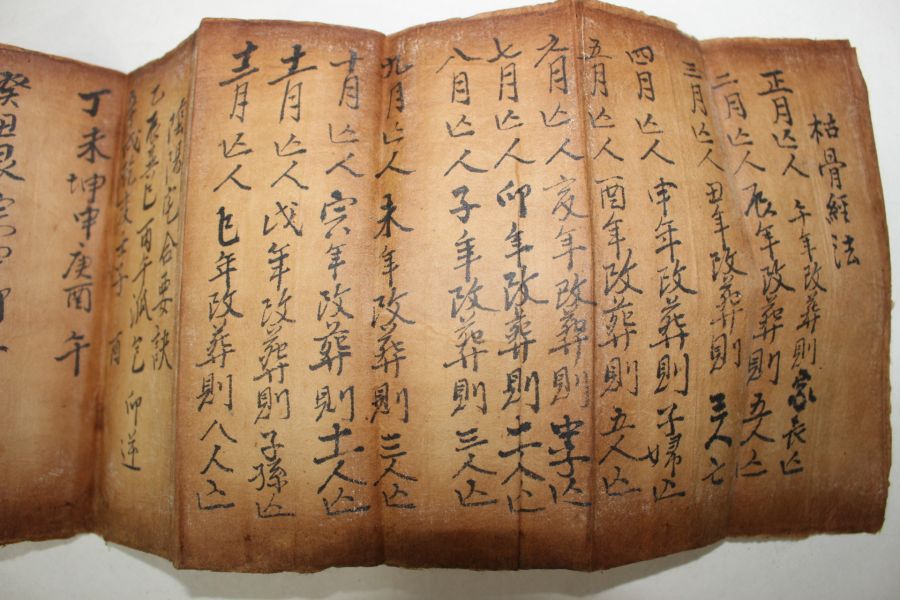 枯骨經法
正月亾人 午年改葬則家長亾
二月亾人 辰年改葬則五人亾
三月亾人 丑年改葬則三人亡
四月亾人 申年改葬則子婦亾
五月亾人 酉年改葬則五人亾
六月亾人 亥年改葬則中子亾
七月亾人 卯年改葬則二人亾
八月亾人 子年改葬則三人亾
九月亾人 未年改葬則三人亾
十月亾人 寅年改葬則十一人亾
十一月亾人 戌年改葬則子孫亾
十二月亾人 巳年改葬則八人亾
合要訣
乙辰巽巳丙午 卯逆
酉
丁未坤申庚酉 午
癸丑艮寅甲卯